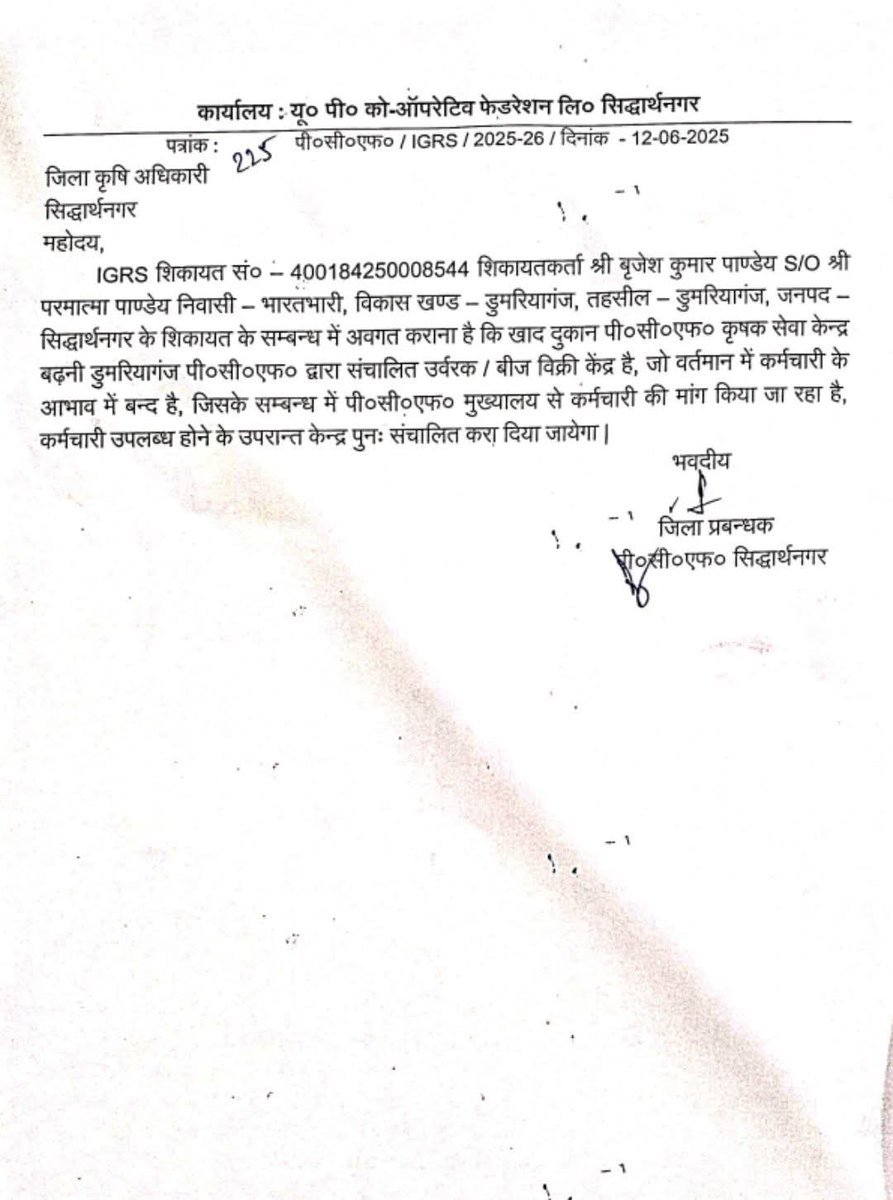 कार्यालय : यू० पी० को-ऑपरेटिव फेडरेशन लि० सिद्धार्थनगर
पत्रांक : 225 पी०सी०एफ० / IGRS / 2025-26 / दिनांक - 12-06-2025
जिला कृषि अधिकारी
सिद्धार्थनगर
महोदय,
IGRS शिकायत सं० – 400184250008544 शिकायतकर्ता श्री बृजेश कुमार पाण्डेय S/O श्री
परमात्मा पाण्डेय निवासी – भारतभारी, विकास खण्ड – डुमरियागंज, तहसील – डुमरियागंज, जनपद –
सिद्धार्थनगर के शिकायत के सम्बन्ध में अवगत कराना है कि खाद दुकान पी०सी०एफ० कृषक सेवा केन्द्र
बढ़नी डुमरियागंज पी०सी०एफ० द्वारा संचालित उर्वरक / बीज विक्री केंद्र है, जो वर्तमान में कर्मचारी के
आभाव में बन्द है, जिसके सम्बन्ध में पी०सी०एफ० मुख्यालय से कर्मचारी की मांग किया जा रहा है,
कर्मचारी उपलब्ध होने के उपरान्त केन्द्र पुनः संचालित करा दिया जायेगा |
भवदीय
जिला प्रबन्धक
पी०सी०एफ० सिद्धार्थनगर